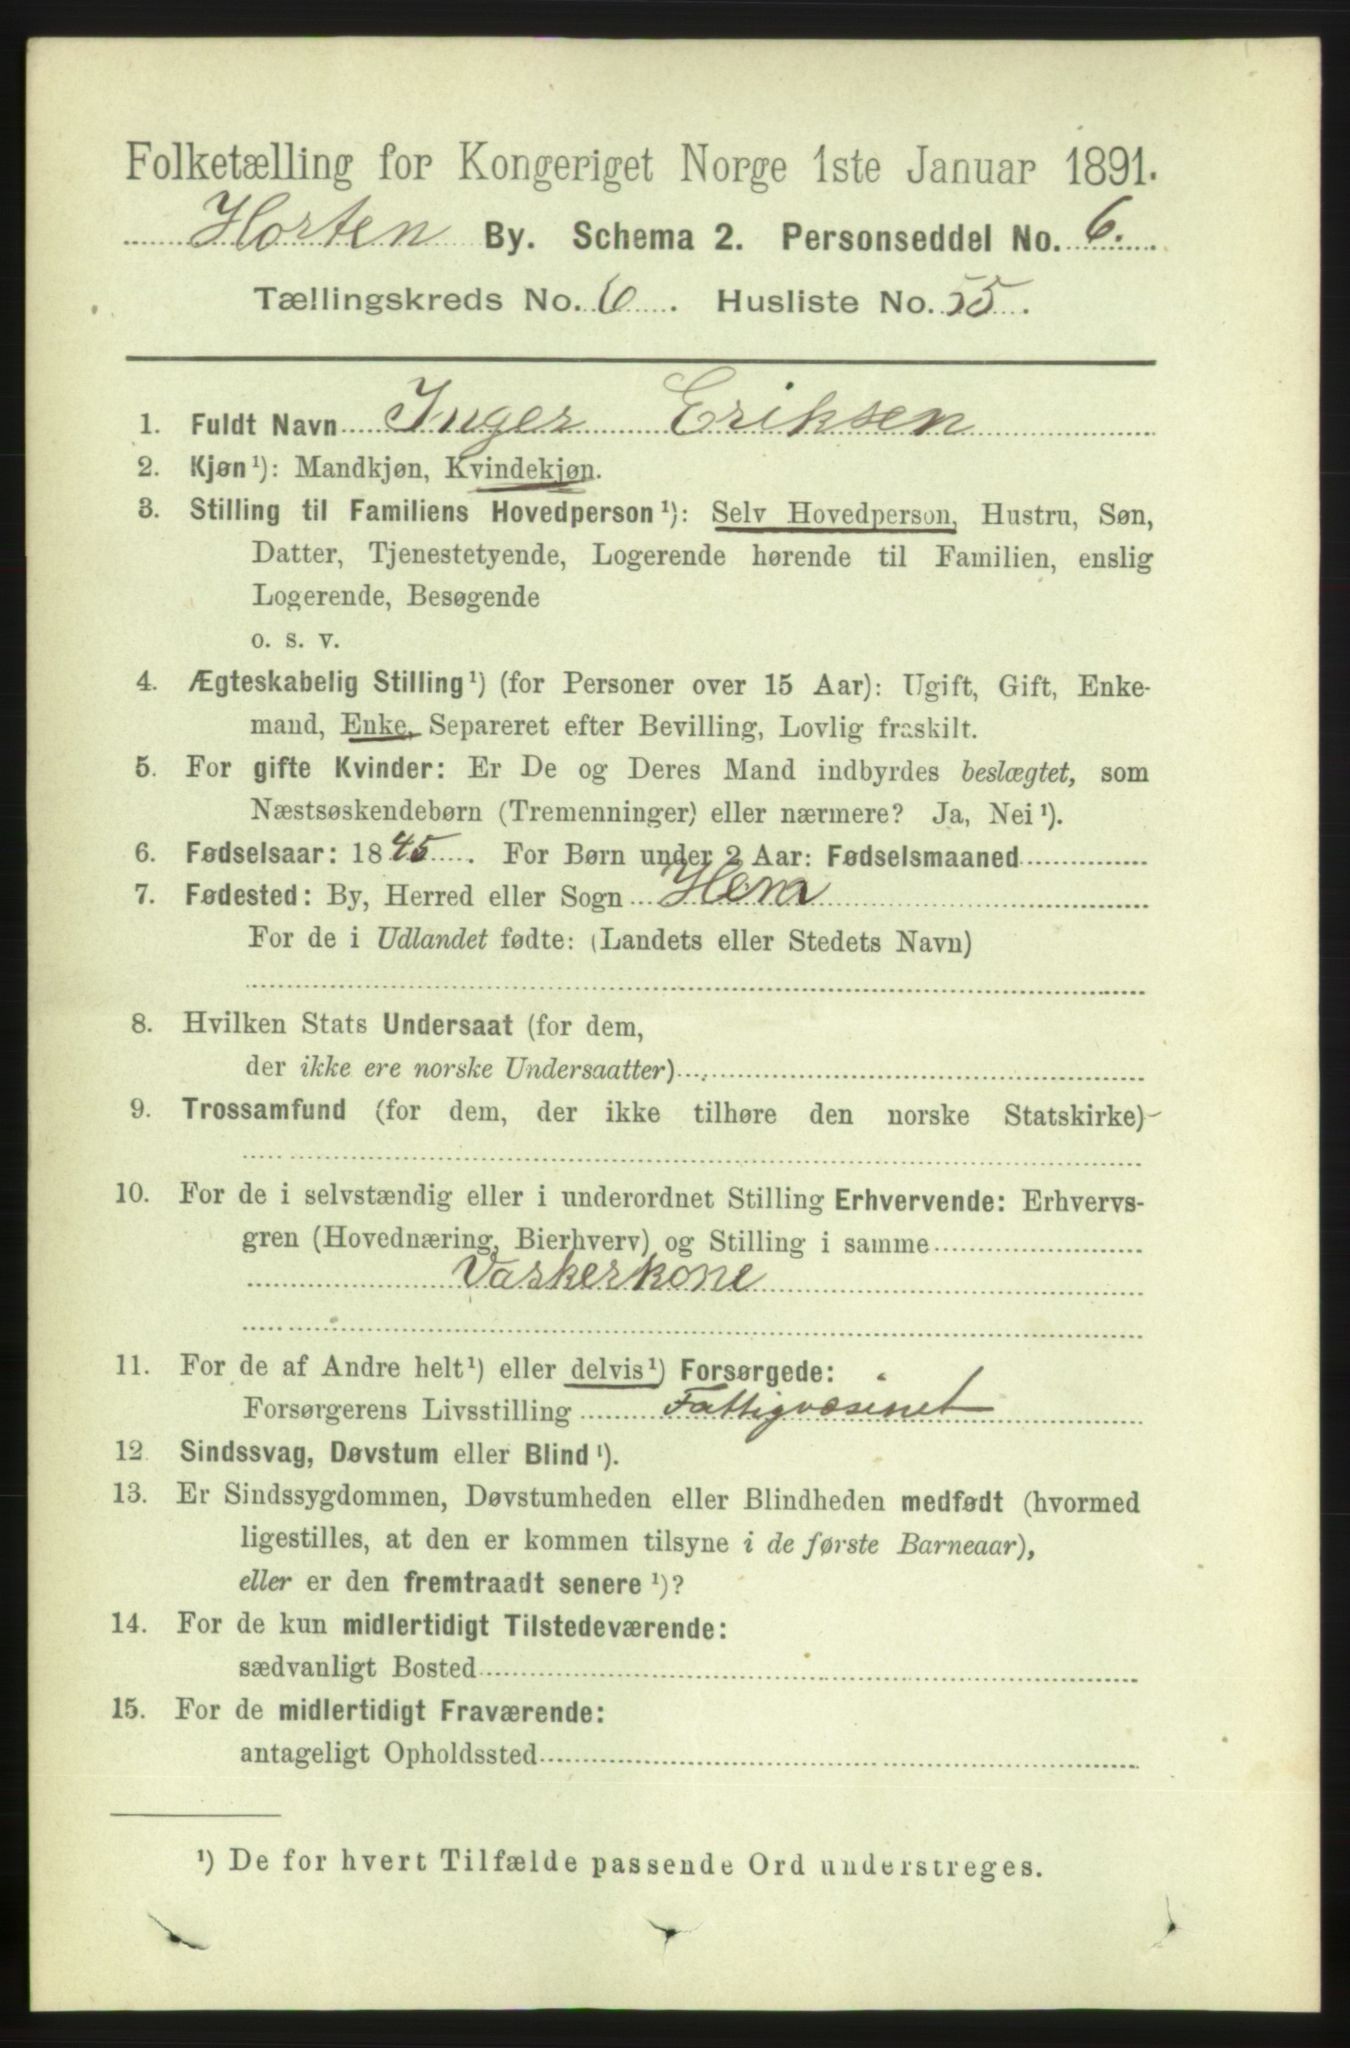 Folketælling for Kongeriget Norge 1ste Januar 1891.
Horten By. Schema 2. Personseddel No. 6.
Tællingskreds No. 6. Husliste No. 55.
1. Fuldt Navn Inger Eriksen
2. Kjøn ¹): Mandkjøn, Kvindekjøn.
3. Stilling til Familiens Hovedperson ¹): Selv Hovedperson, Hustru, Søn,
Datter, Tjenestetyende, Logerende hørende til Familien, enslig
Logerende, Besøgende
o. s. v.
4. Ægteskabelig Stilling ¹) (for Personer over 15 Aar): Ugift, Gift, Enke-
mand, Enke, Separeret efter Bevilling, Lovlig fraskilt.
5. For gifte Kvinder: Er De og Deres Mand indbyrdes beslægtet, som
Næstsøskendebørn (Tremenninger) eller nærmere? Ja, Nei ¹).
6. Fødselsaar: 1845. For Børn under 2 Aar: Fødselsmaaned
7. Fødested: By, Herred eller Sogn Hem
For de i Udlandet fødte: (Landets eller Stedets Navn)
8. Hvilken Stats Undersaat (for dem,
der ikke ere norske Undersaatter)
9. Trossamfund (for dem, der ikke tilhøre den norske Statskirke)
10. For de i selvstændig eller i underordnet Stilling Erhvervende: Erhvervs-
gren (Hovednæring, Bierhverv) og Stilling i samme
Vaskerkone
11. For de af Andre helt ¹) eller delvis ¹) Forsørgede:
Forsørgerens Livsstilling Fattigvæsenet
12 Sindssvag, Døvstum eller Blind ¹).
13. Er Sindssygdommen, Døvstumheden eller Blindheden medfødt (hvormed
ligestilles, at den er kommen tilsyne i de første Barneaar),
eller er den fremtraadt senere ¹)?
14. For de kun midlertidigt Tilstedeværende:
sædvanligt Bosted
15. For de midlertidigt Fraværende:
antageligt Opholdssted
¹) De for hvert Tilfælde passende Ord understreges.